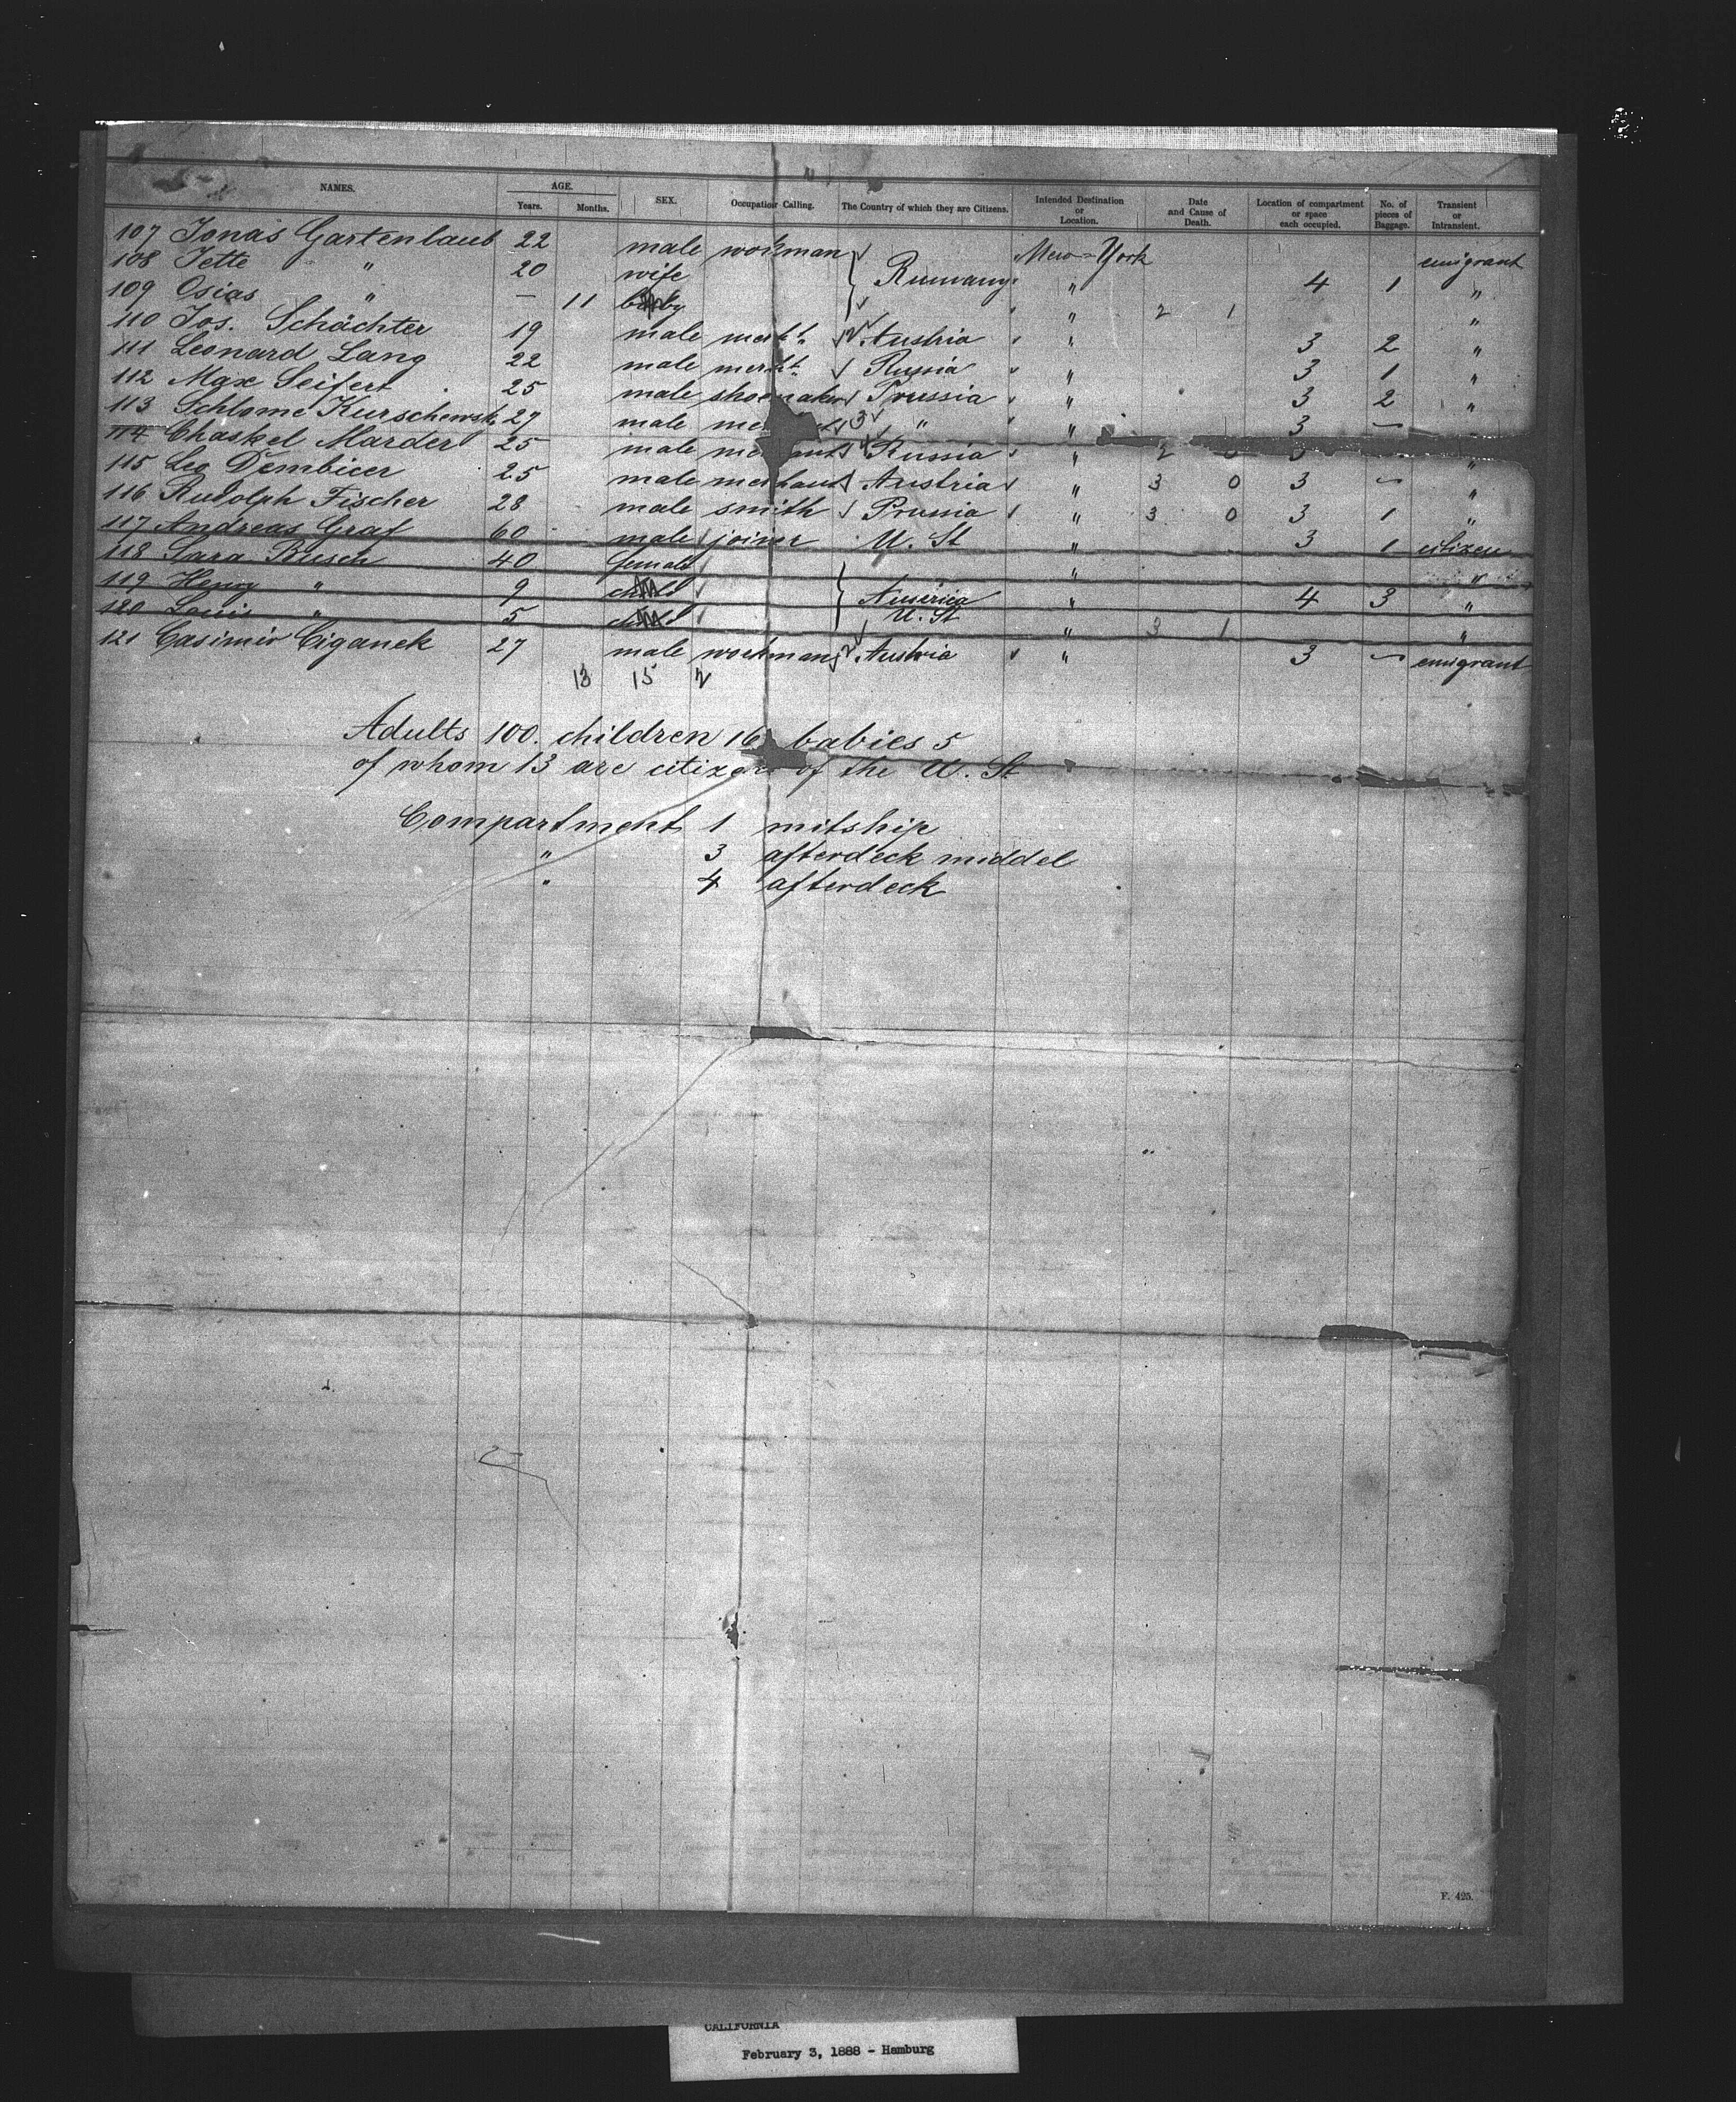 NAMES. AGE. Years. Months. SEX. Occupation Calling. The Country of which they are Citizens. Intended Destination or Location. Date and Cause of Death. Location of compartment or space each occupied. No. of pieces of Baggage. Transient or Intransient.
107 Jonas Gartenlaub 22 male wokman New-York emigrant
108 Jette " 20 wife Rumany " 4 1 "
109 Osias " — 11 baby " 2 1 "
110 Jos. Schächter 19 male mercht. Austria " 3 2 "
111 Leonard Lang 22 male mercht. Russia " 3 1 "
112 Max Seifert 25 male shoemaker Prussia " 3 2 "
113 Schlome Kurschewsk 27 male 3 " " 3 —
114 Chaskel Marder 25 male 4 Russia " 2 3 "
115 Leo Dembicer 25 male merchant Austria " 3 0 3 — "
116 Rudolph Fischer 28 male smith Prussia " 3 0 3 1 "
117 Andreas Graf 60 male joiner U. St " 3 1 citizen
118 Sara Busch 40 female " "
119 Henry " 9 child America " 4 3 "
120 Louis " 5 child U. St " 3 1 "
121 Casimir Ciganek 27 male workman 2 Austria " 3 — emigrant
13 15 2
Adults 100. children 16 babies 5
of whom 13 are citizens of the U. St
Compartment 1 mitship
" 3 afterdeck middel
" 4 afterdeck
F. 425.
CALIFORNIA
February 3, 1888 - Hamburg